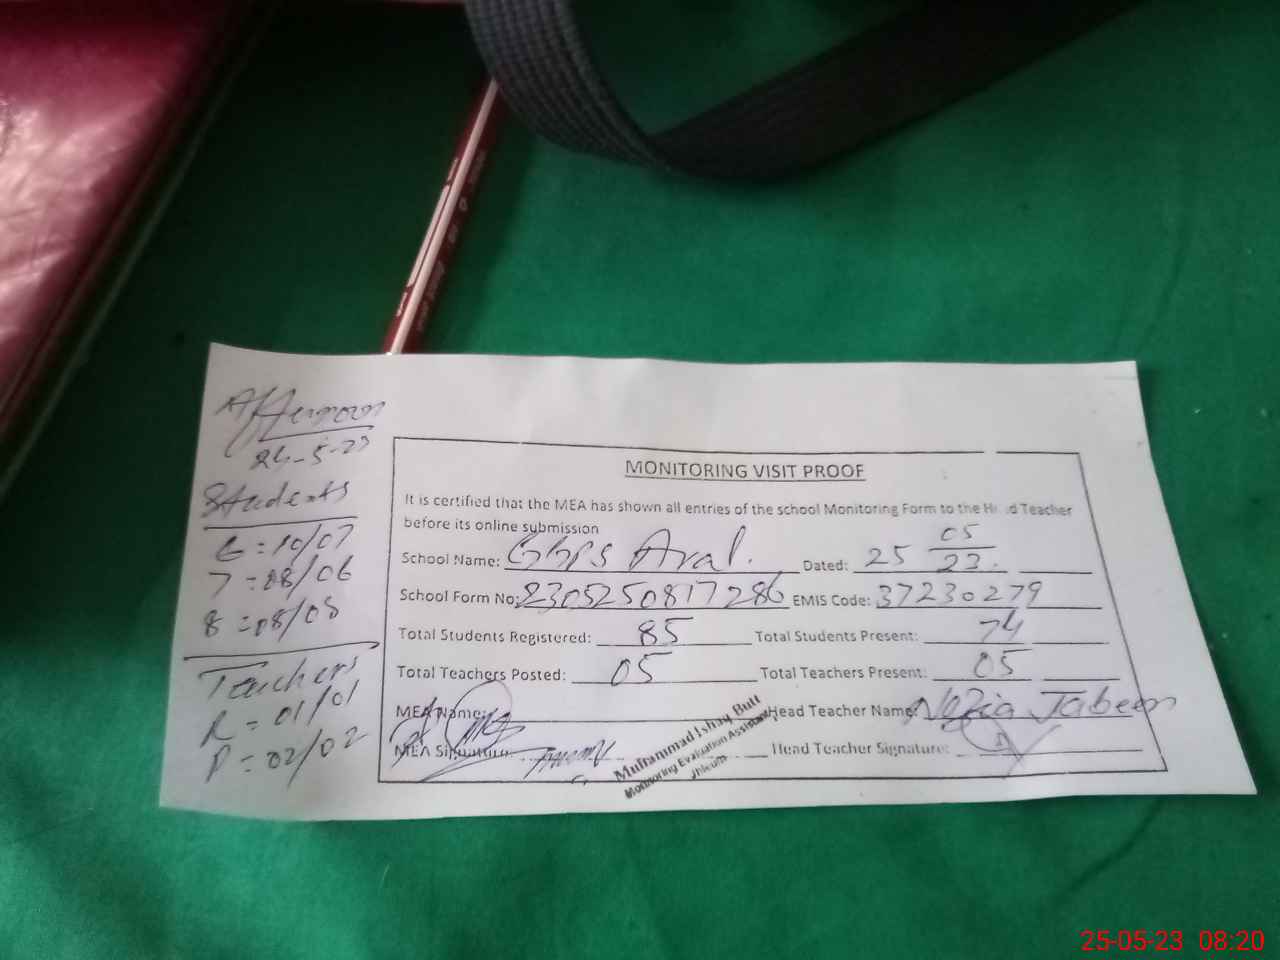 Afternoon
24-5-23
Students
6 = 10/07
7 = 08/06
8 = 08/08
Teachers
R = 01/01
P = 02/02
MONITORING VISIT PROOF
It is certified that the MEA has shown all entries of the school Monitoring Form to the Head Teacher
before its online submission
School Name: GGPS Aral. Dated: 25 05/23.
School Form No: 2305250817286 EMIS Code: 37230279
Total Students Registered: 85 Total Students Present: 74
Total Teachers Posted: 05 Total Teachers Present: 05
MEA Name: Head Teacher Name: Nazia Jabeen
MEA Signature: Head Teacher Signature:
Muhammad Ishaq Butt
Monitoring Evaluation Assistant
Jhleum
25-05-23 08:20